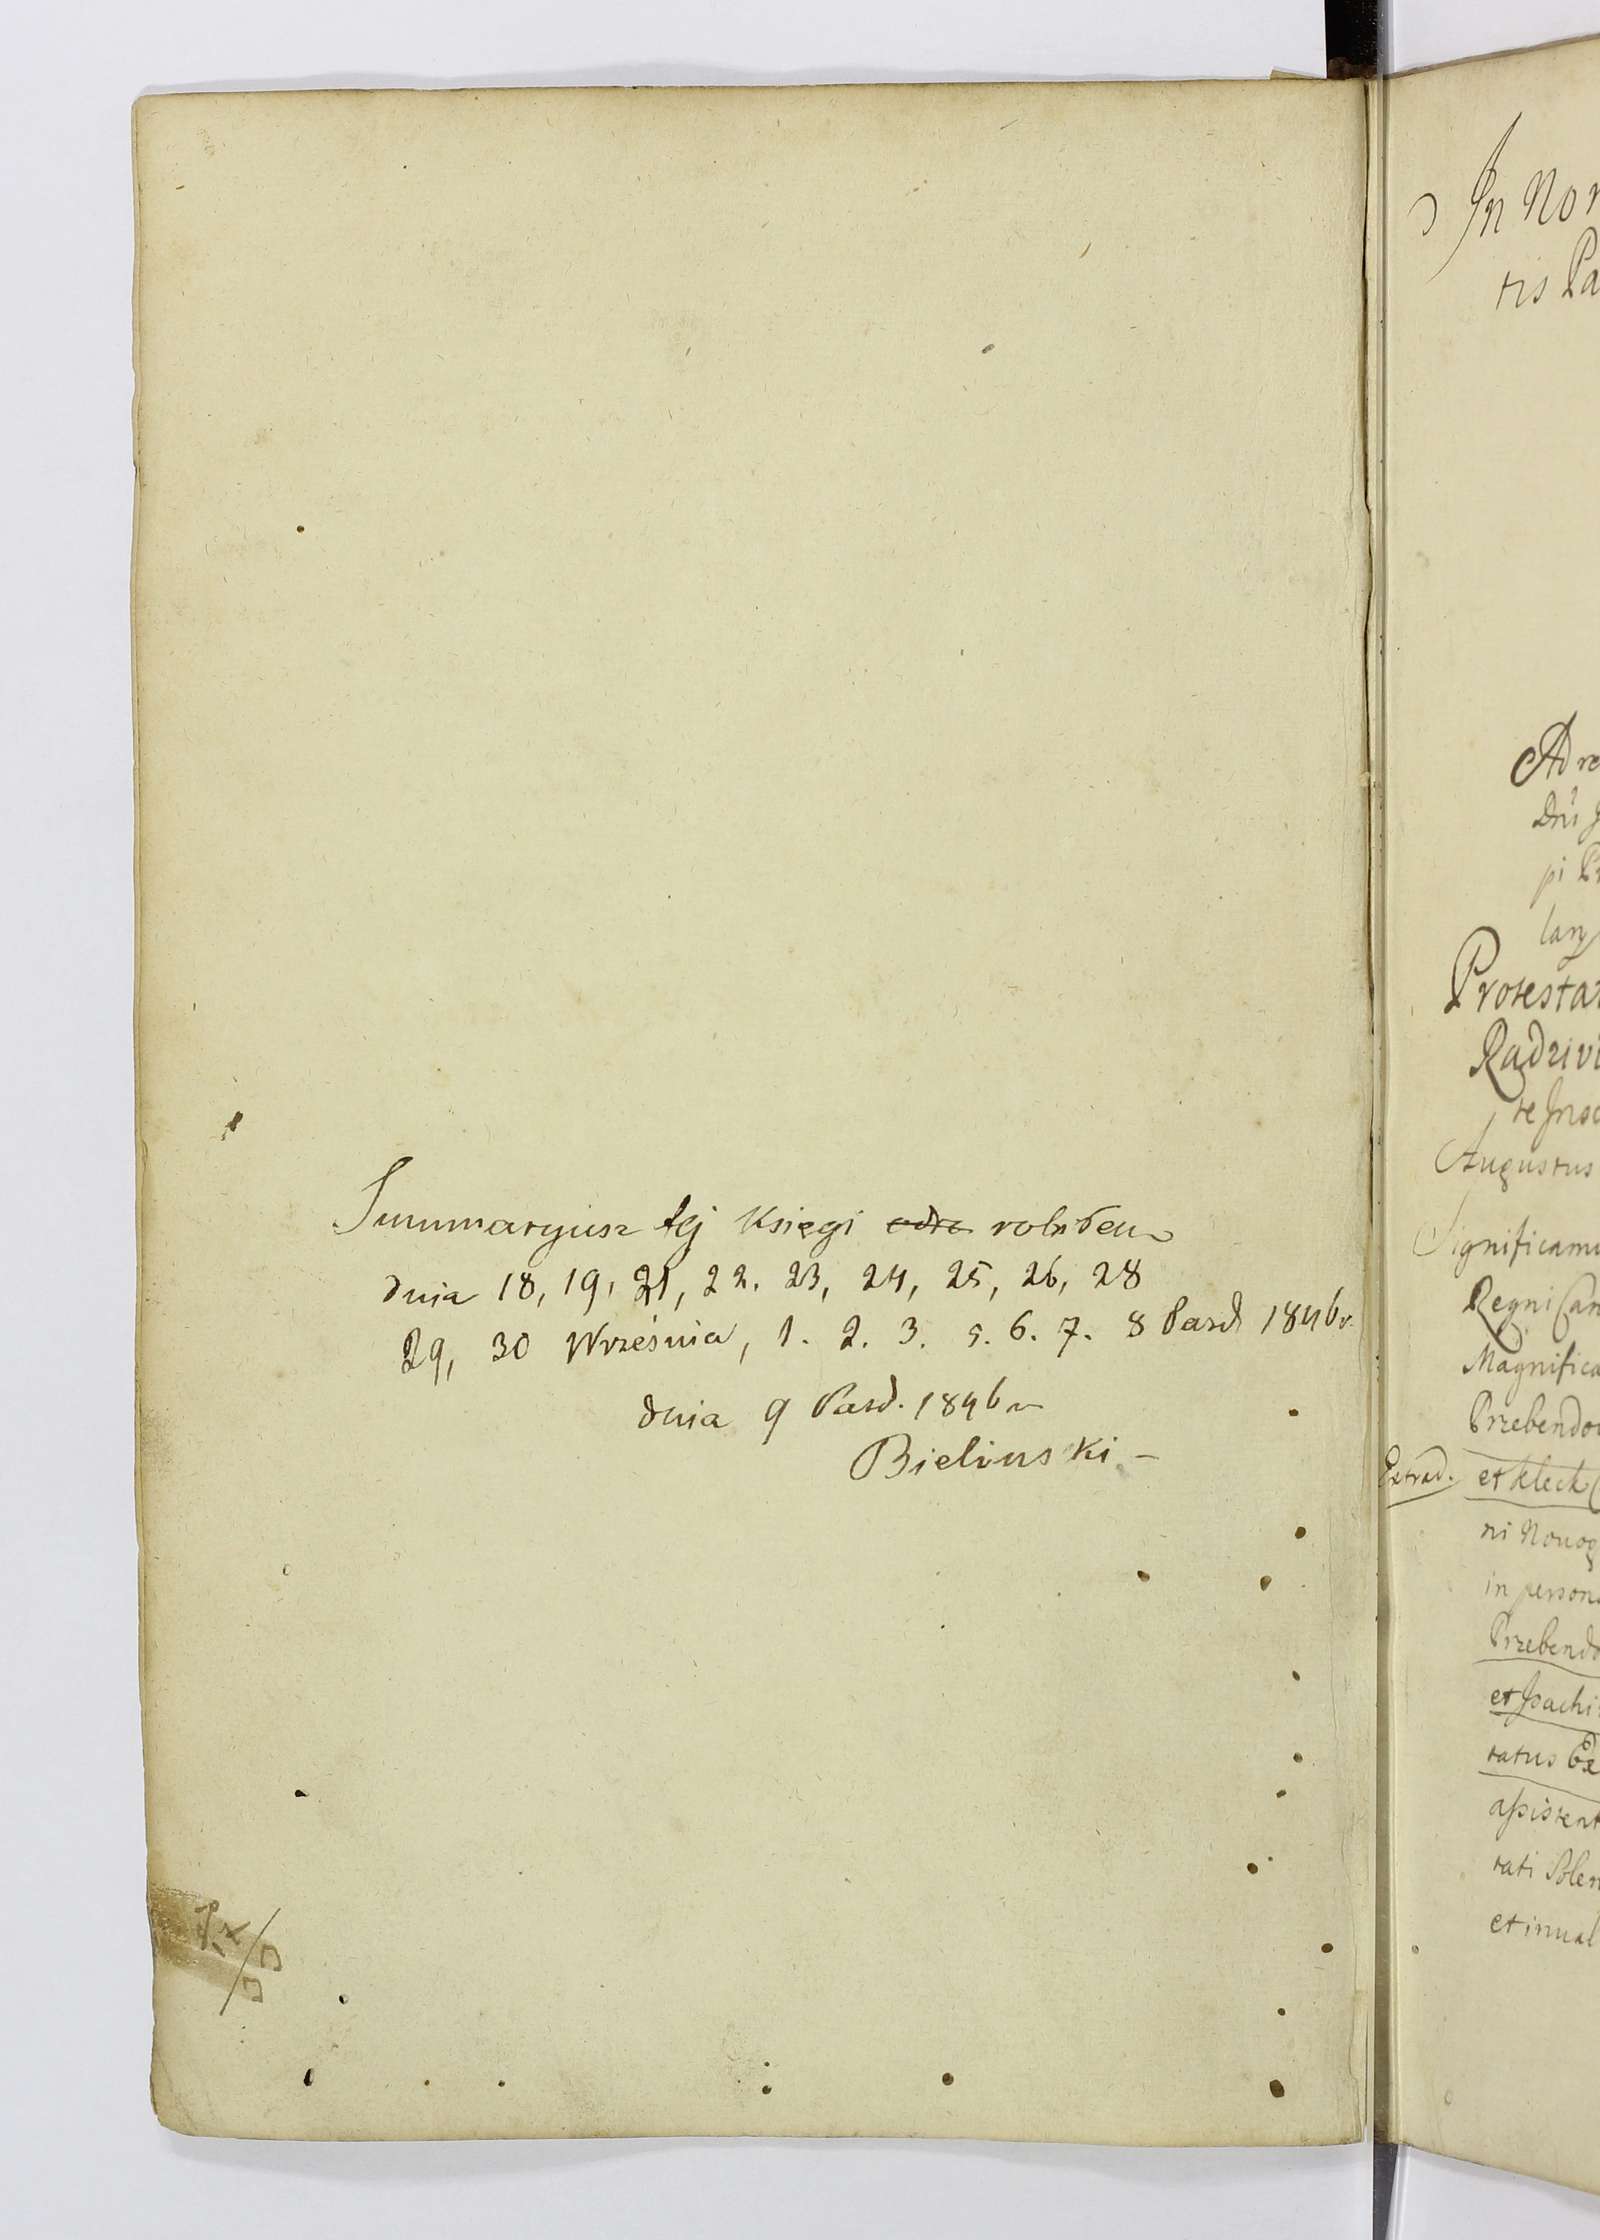 Summaryusz tej Księgi odra robiłem
dnia 18, 19, 21, 22. 23, 24, 25, 26, 28
29, 30 Września, 1. 2. 3. 5. 6. 7. 8 Pazd 1846 r.
dnia 9 Pazd. 1846 r
Bielinski –
In No
tis Pa
Ad re
Dni
pi Pr
Protesta
Radzivi
te Insc
Augustus
Significamu
Regni Can
Magnifica
Przebendo
Extrad. et Kleck
ni Novog
in person
Przebendo
et Joachi
tatus Ex
assistent
tati Solen
et inval